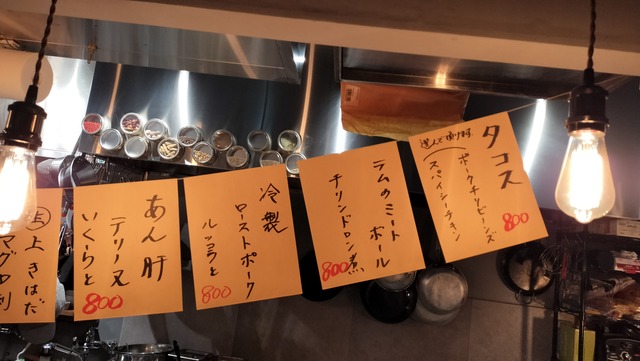 タコス
選んで頂けます
ポークチリビーンズ
スパイシーチキン
800
ラムのミート
ボール
チリンドロン煮
800
冷製
ローストポーク
ルッコラと
800
あん肝
テリーヌ
いくらと
800
上きはだ
マグロ刺